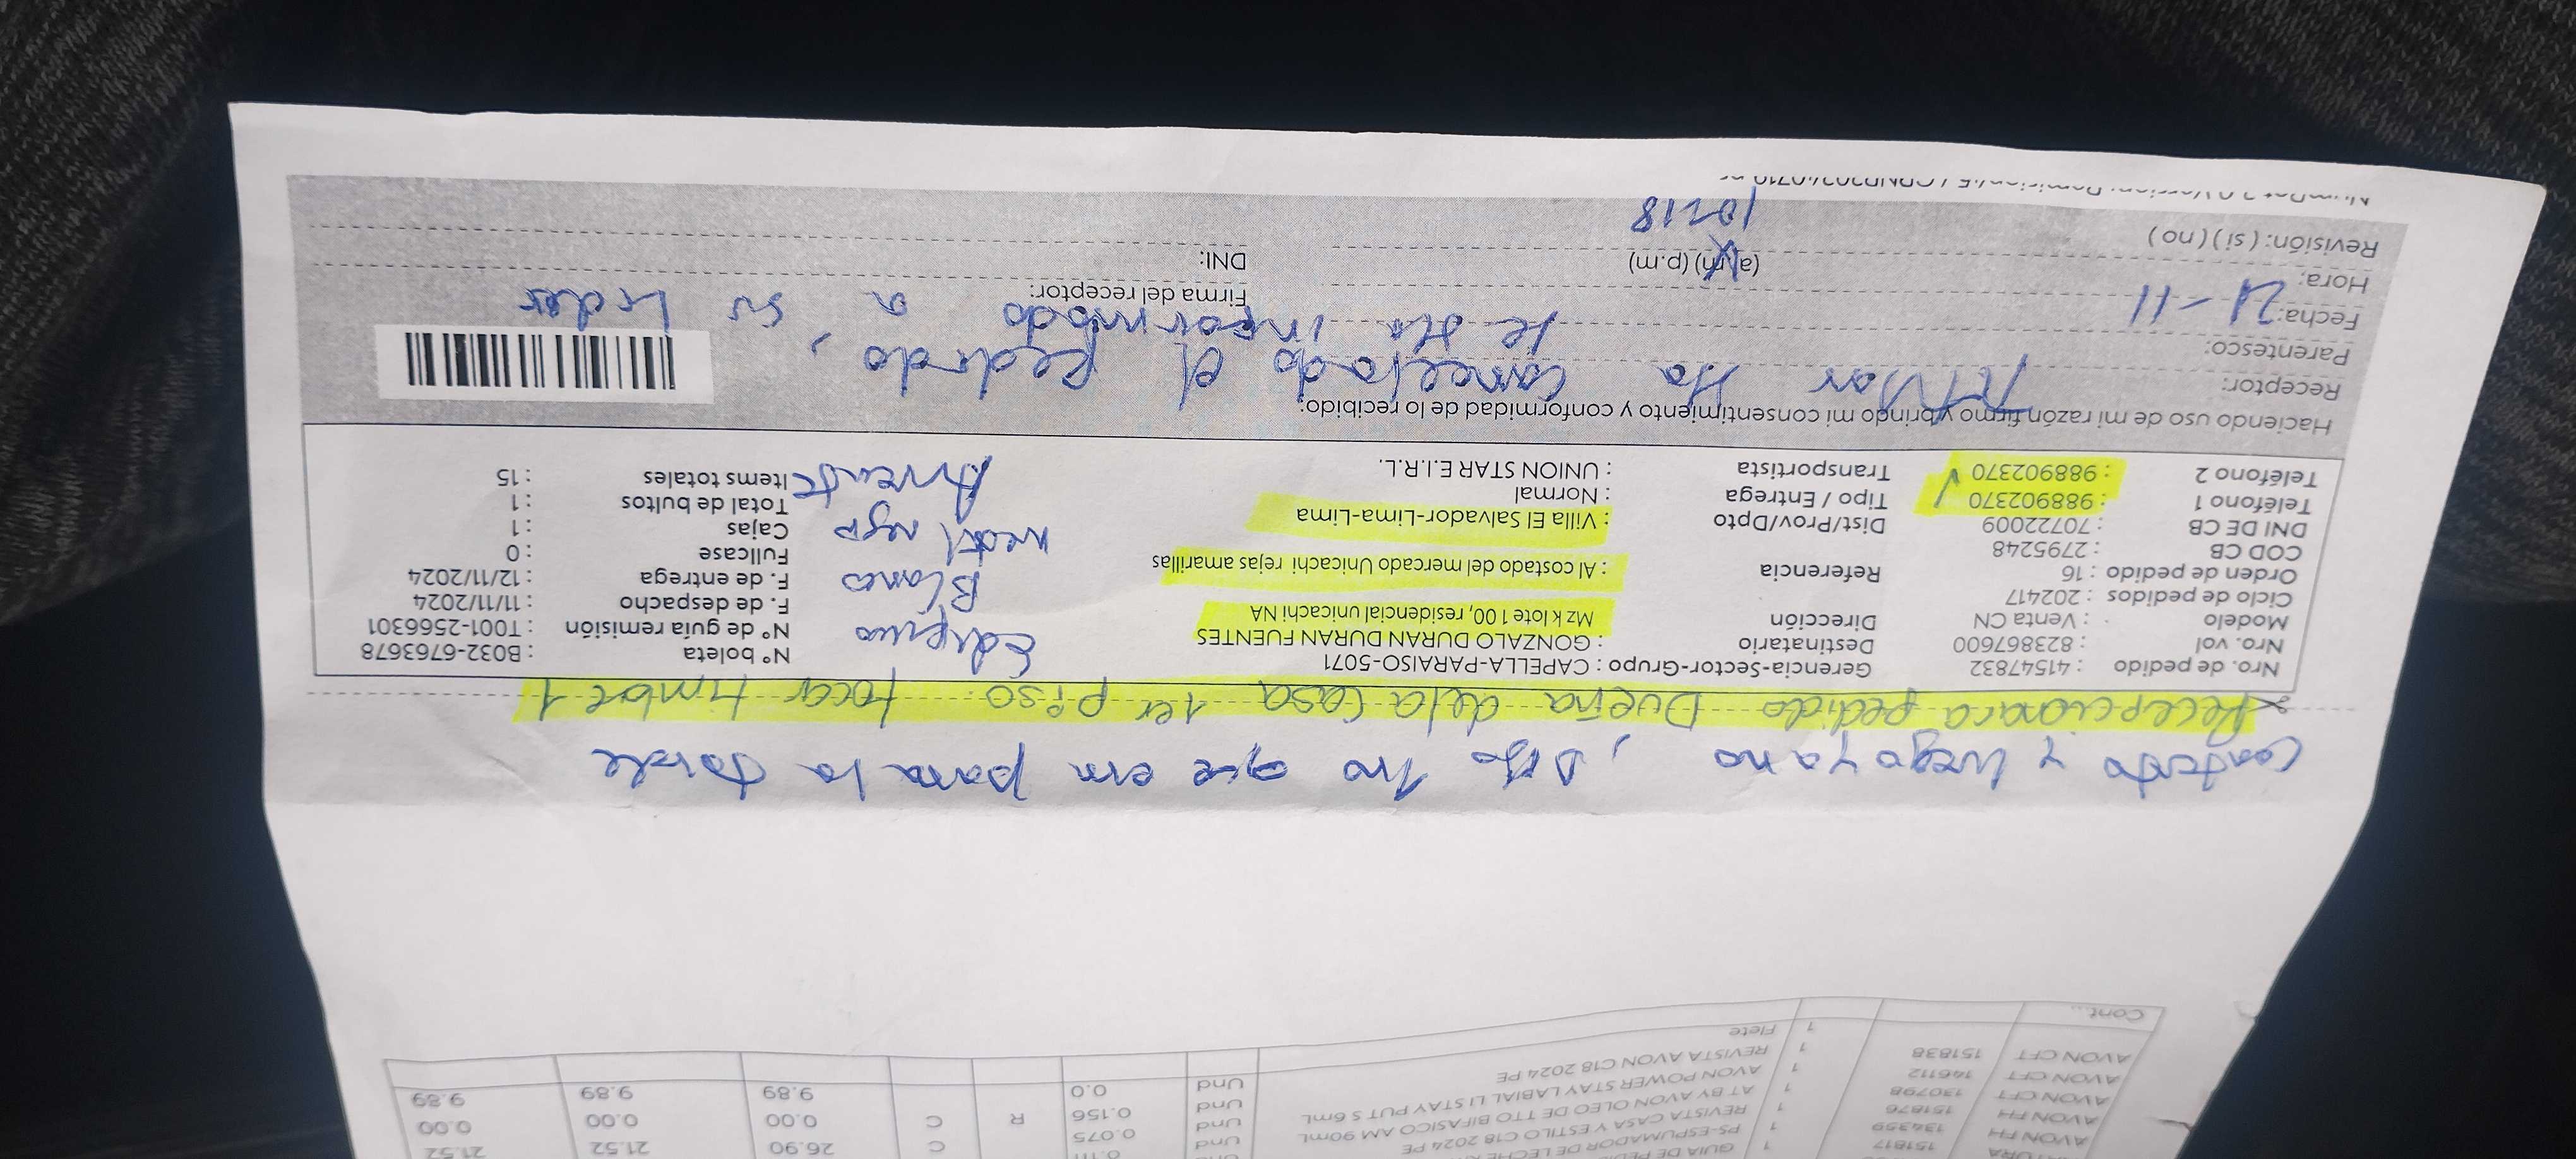 GUIA DE PEDI
AVON FH 151817 PS-ESPUMADOR DE LECHE 1 Und 0.111 C 26.90 21.52 21.52
AVON FH 134359 REVISTA CASA Y ESTILO C18 2024 PE 1 Und 0.075 R C 0.00 0.00 0.00
151876 AT BY AVON OLEO DE TTO BIFASICO AM 90mL 1 Und 0.156 9.89 9.89 9.89
AVON CFT 130798 AVON POWER STAY LABIAL LI STAY PUT S 6mL 1 Und 0.0
AVON CFT 146112 REVISTA AVON C18 2024 PE 1
AVON CFT 151838 Flete 1
Cont...
Contesto y luego ya no, Dijo 1ro que era para la tarde
Recepcionara pedido Dueña de la Casa 1er piso. tocar timbre 1
Nro. de pedido : 41547832 Gerencia-Sector-Grupo : CAPELLA-PARAISO-5071 N° boleta : B032-6763678
Nro. vol : 823867600 Destinatario : GONZALO DURAN DURAN FUENTES Edificio N° de guía remisión : T001-2566301
Modelo : Venta CN Dirección Mz k lote 1 00, residencial unicachi NA F. de despacho : 11/11/2024
Ciclo de pedidos : 202417 Blanco F. de entrega : 12/11/2024
Orden de pedido : 16 Referencia : Al costado del mercado Unicachi rejas amarillas Fullcase : 0
COD CB : 2795248 negro Cajas : 1
DNI DE CB : 70722009 Dist/Prov/Dpto : Villa El Salvador-Lima-Lima Total de bultos : 1
Teléfono 1 : 988902370 Tipo / Entrega : Normal Items totales : 15
Teléfono 2 : 988902370 Transportista : UNION STAR E.I.R.L.
Haciendo uso de mi razón firmo y brindo mi consentimiento y conformidad de lo recibido:
Receptor: Ha cancelado el pedido,
Parentesco: se ha informado a su Lider
Fecha: 21-11 Firma del receptor:
Hora: (a.m) (p.m) DNI:
Revisión: (si) (no) 10:18